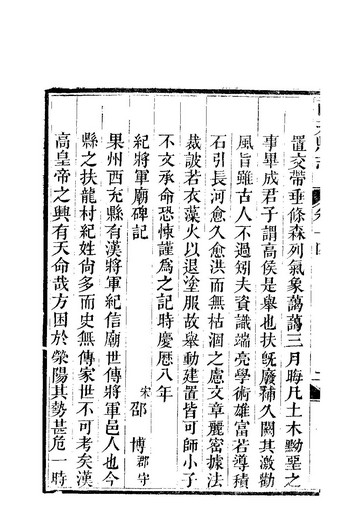 置交帶垂條森列氣象藹藹三月晦凡土木黝堊之
事畢成君子謂高侯是舉也扶旣廢補久闕其激勸
風旨雖古人不過矧夫資識端亮學術雄富若導積
石引長河愈久愈洪而無枯涸之慮文章麗密據法
裁詖若衣藻火以退塗服故舉動建置皆可師小子
不文承命恐悚謹爲之記時慶厯八年
紀將軍廟碑記
宋 邵 博 郡守
果州西充縣有漢將軍紀信廟世傳將軍邑人也今
縣之扶龍村紀姓尚多而史無傳家世不可考矣漢
高皇帝之興有天命哉方困於滎陽其勢甚危一時